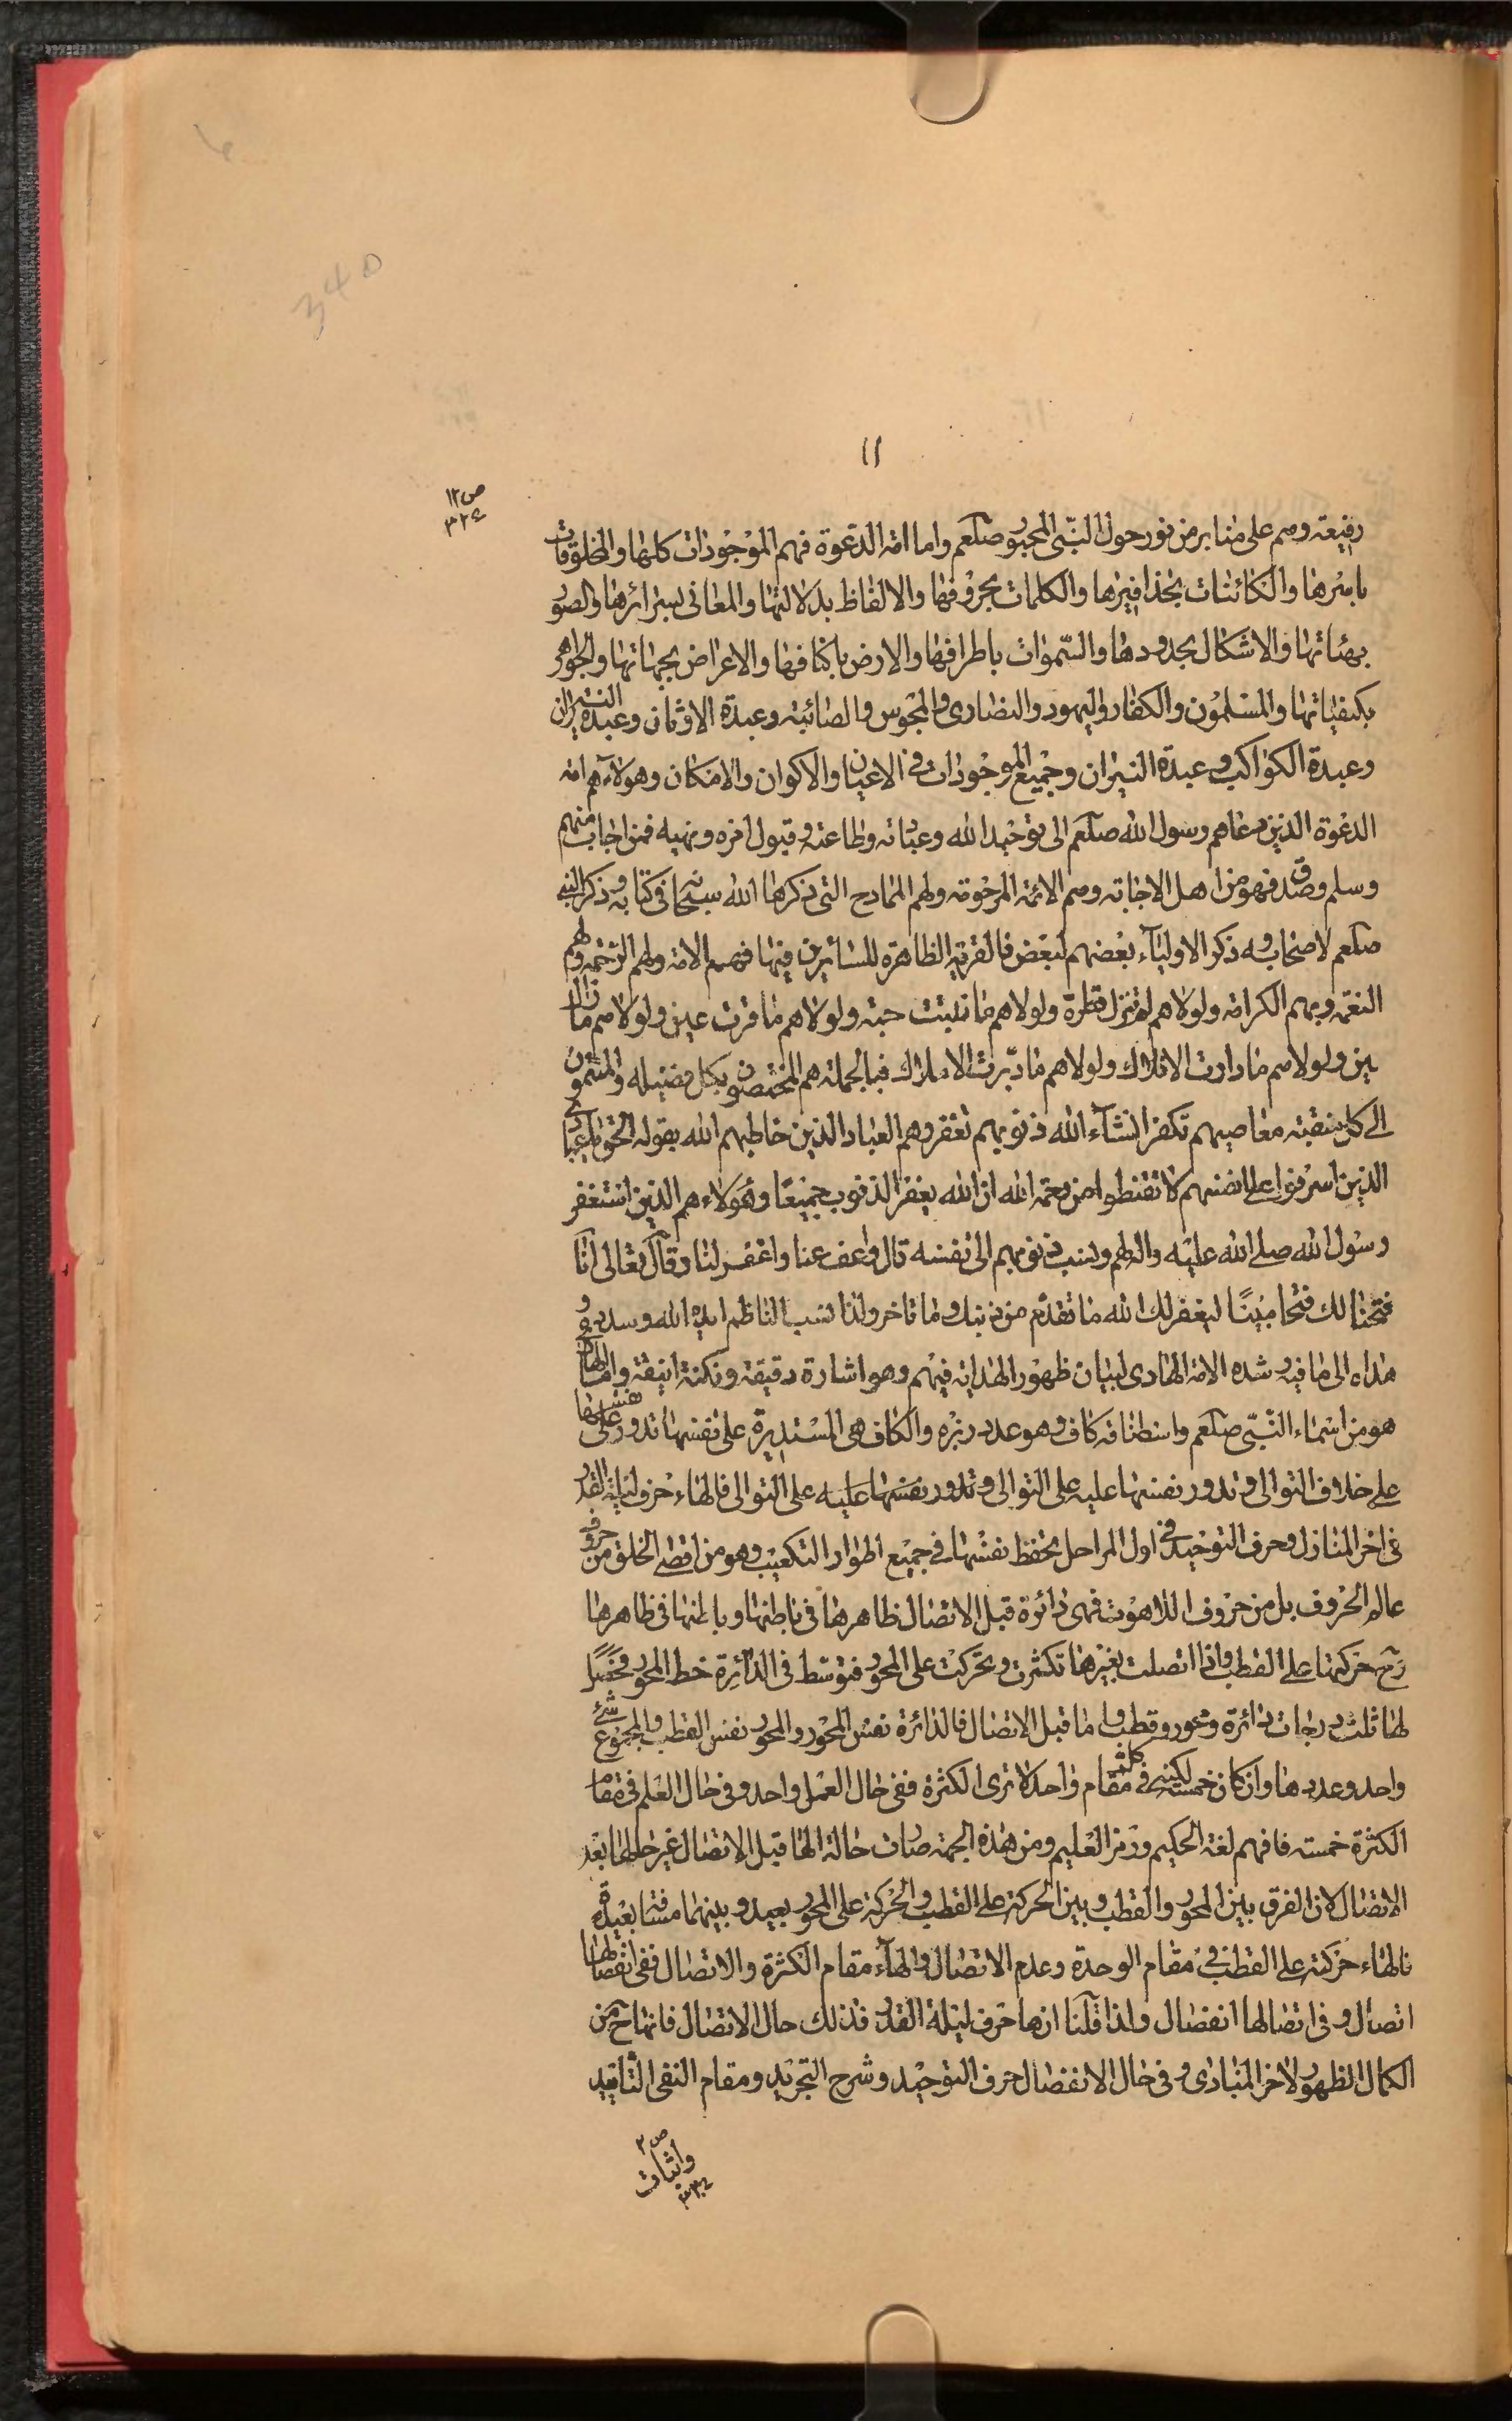 340
١١
ص١٢
٣٢٤
رفيعة وهم على منابر من نور حول النبي المحبور صلعم واما امة الدعوة فهم الموجودات كلها والمخلوقات
باسرها والكائنات بحذافيرها والكلمات بحروفها والالفاظ بدلالتها والمعانى بسرائرها والصور
بهيئاتها والاشكال بحدودها والسموات باطرافها والارض باكنافها والاعراض بجهاتها والجواهر
بكيفياتها والمسلمون والكفار واليهود والنصارى والمجوس والصائبة وعبدة الاوثان وعبدة النيران
وعبدة الكواكب وعبدة النيران وجميع الموجودات فى الاعيان والاكوان والامكان وهولاء هم امة
الدعوة الذين دعاهم رسول الله صلعم الى توحيد الله وعباته وطاعته وقبول امره ونهيه فمن اجاب منهم
وسلم وصدق فهو من اهل الاجابة وهم الائمة المرحومة ولهم الممادح التى ذكرها الله سبحانه فى كتابه وذكر النبى
صلعم لاصحابه وذكر الاولياء بعضهم لبعض فالقرية الظاهرة للسائرين فيها فهم الامة ولهم الرحمة وهم
النعمة وبهم الكرامة ولولاهم لم تنزل قطرة ولولاهم ما تنبتت حبة ولولاهم ما قرت عين ولولاهم ما بان
بين ولولاهم ما دارت الافلاك ولولاهم ما دبرت الاملاك فبالجملة هم المختصون بكل فضيلة والمنتمون
الى كل منقبة معاصيهم تكفر انشآء الله ذنوبهم تغفر وهم العباد الذين خاطبهم الله بقوله الحق يا عبادى
الذين اسرفوا على انفسهم لا تقنطوا من رحمة الله ان الله يغفر الذنوب جميعا وهولاء هم الذين استغفر
رسول الله صلى الله عليه واله لهم ونسب ذنوبهم الى نفسه قال واعف عنا واغفر لنا وقال تعالى انا
فتحنا لك فتحا مبينا ليغفر لك الله ما تقدم من ذنبك وما تاخر ولذا نسب الناظم ايده الله وسدده و
هداه الى ما فيه رشده الامة الهادى لبيان ظهور الهداية فيهم وهو اشارة دقيقة ونكتة انيقة واما الهاء
هو من اسماء النبى صلعم واسطنا فه كاف وهو عدد زبره والكاف هى المستديرة على نفسها تدور على نفسها
على خلاف التوالى وتدور نفسها عليه على التوالى وتدور نفسها عليه على التوالى فالهاء حرف ليلة القدر
فى اخر المنازل وحرف التوحيد فى اول المراحل تحفظ نفسها فى جميع اطوار التكعيب وهو من اقصى الخلق من حروف
عالم الحروف بل من حروف اللاهوت فهى دائرة قبل الاتصال ظاهرها فى باطنها وباطنها فى ظاهرها
رح حركتها على القطب واذا اتصلت بغيرها تكثرت وتحركت على المحور فتوسط فى الدائرة خط المحور فحصل
لها ثلث درجات دائرة ومحور وقطب واما قبل الاتصال فالدائرة نفس المحور والمحور نفس القطب والمجموع شئ
واحد وعددها وان كان خمسة لكنه فى كلمته مقام واحد لا ترى الكثرة ففى حال العمل واحد وفى حال العلم فى مقام
الكثرة خمسة فافهم لغة الحكيم ورمز العليم ومن هذه الجهة صارت حالة الهاء قبل الاتصال غير حالها بعد
الاتصال لان الفرق بين المحور والقطب وبين الحركة على القطب والحركة على المحور بعيد وبينهما مسافة بعيدة
فالهاء حركته على القطب فى مقام الوحدة وعدم الاتصال والهآء مقام الكثرة والاتصال ففى انفصالها
اتصال وفى اتصالها انفصال ولذا قلنا انها حرف ليلة القدر فذلك حال الاتصال فانها ح من
الكمال الظهور لاخر المبادى وفى حال الانفصال حرف التوحيد وشرح التجريد ومقام النفى التاقيد
ص٢
واثبات
٣٣٤